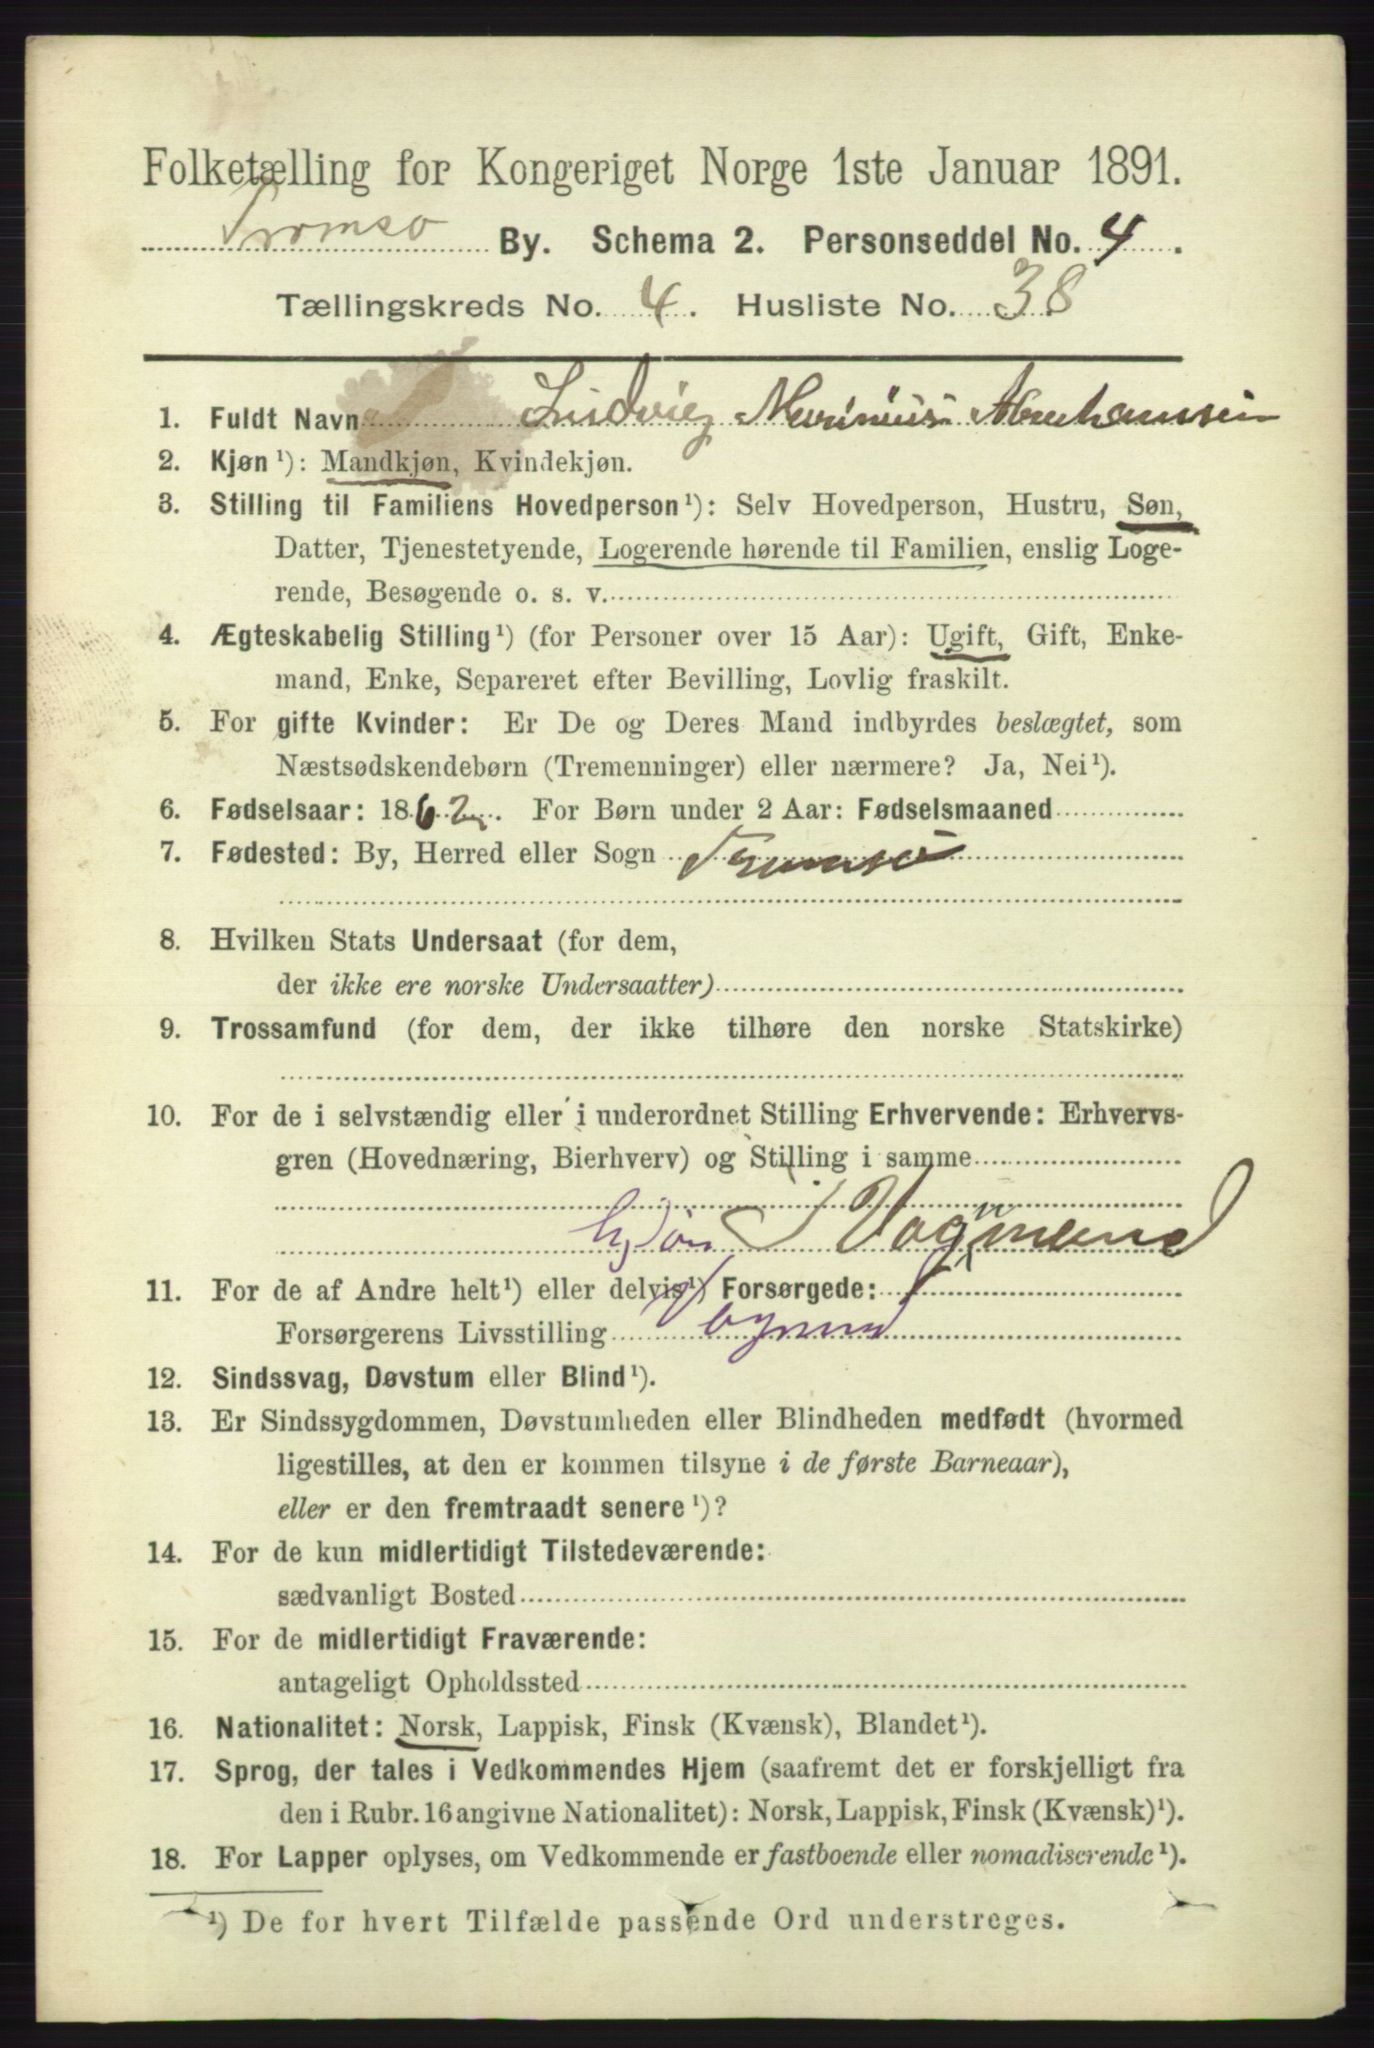 Folketælling for Kongeriget Norge 1ste Januar 1891.
Tromsø By. Schema 2. Personseddel No. 4.
Tællingskreds No. 4. Husliste No. 38
1. Fuldt Navn Ludvig Marinius Abrahamsen
2. Kjøn ¹): Mandkjøn, Kvindekjøn.
3. Stilling til Familiens Hovedperson ¹): Selv Hovedperson, Hustru, Søn,
Datter, Tjenestetyende, Logerende hørende til Familien, enslig Loge-
rende, Besøgende o. s. v.
4. Ægteskabelig Stilling ¹) (for Personer over 15 Aar): Ugift, Gift, Enke-
mand, Enke, Separeret efter Bevilling, Lovlig fraskilt.
5. For gifte Kvinder: Er De og Deres Mand indbyrdes beslægtet, som
Næstsødskendebørn (Tremenninger) eller nærmere? Ja, Nei ¹).
6. Fødselsaar: 1862. For Børn under 2 Aar: Fødselsmaaned
7. Fødested: By, Herred eller Sogn Tromsø
8. Hvilken Stats Undersaat (for dem,
der ikke ere norske Undersaatter)
9. Trossamfund (for dem, der ikke tilhøre den norske Statskirke)
10. For de i selvstændig eller i underordnet Stilling Erhvervende: Erhvervs-
gren (Hovednæring, Bierhverv) og Stilling i samme
Vognmand
11. For de af Andre helt ¹) eller delvis ¹) Forsørgede:
Forsørgerens Livsstilling
12. Sindssvag, Døvstum eller Blind ¹).
13. Er Sindssygdommen, Døvstumheden eller Blindheden medfødt (hvormed
ligestilles, at den er kommen tilsyne i de første Barneaar),
eller er den fremtraadt senere ¹)?
14. For de kun midlertidigt Tilstedeværende:
sædvanligt Bosted
15. For de midlertidigt Fraværende:
antageligt Opholdssted
16. Nationalitet: Norsk, Lappisk, Finsk (Kvænsk), Blandet ¹).
17. Sprog, der tales i Vedkommendes Hjem (saafremt det er forskjelligt fra
den i Rubr. 16 angivne Nationalitet): Norsk, Lappisk, Finsk (Kvænsk) ¹).
18. For Lapper oplyses, om Vedkommende er fastboende eller nomadiserende ¹).
¹) De for hvert Tilfælde passende Ord understreges.